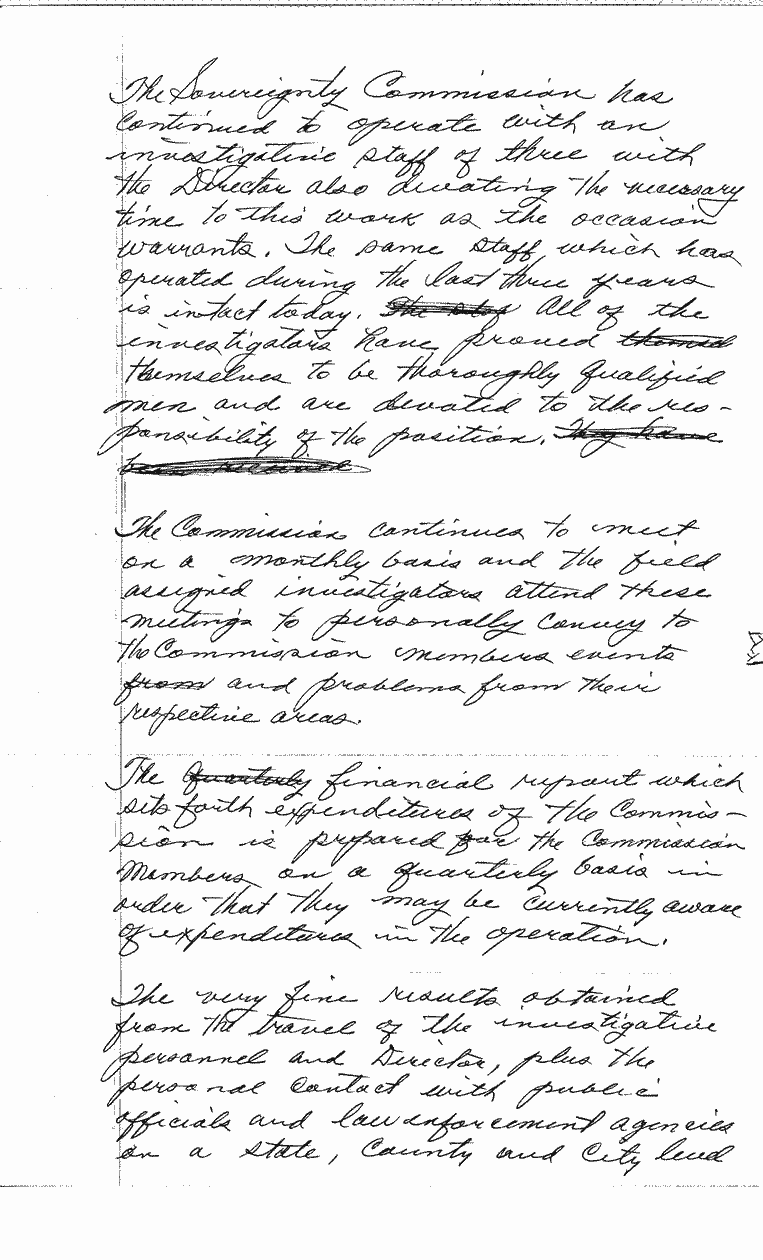 The Sovereignty Commission has
continued to operate with an
investigative staff of three with
the Director also devoting the necessary
time to this work as the occasion
warrants. The same staff which has
operated during the last three years
is intact today. The staf All of the
investigators have proved themsel
themselves to be thoroughly qualified
men and are devoted to the res-
ponsibility of the position. They have
been received
The Commission continues to meet
on a monthly basis and the field
assigned investigators attend these
meetings to personally convey to
the Commission members events
from and problems from their
respective areas.
The Quarterly financial report which
sets forth expenditures of the Commis-
sion is prepared for the Commission
Members on a quarterly basis in
order that they may be currently aware
of expenditures in the operation.
The very fine results obtained
from the travel of the investigative
personnel and Director, plus the
personal contact with public
officials and law enforcement agencies
on a state, County and City level